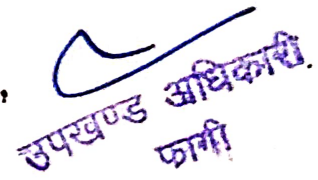 उपखण्ड अधिकारी.
फागी